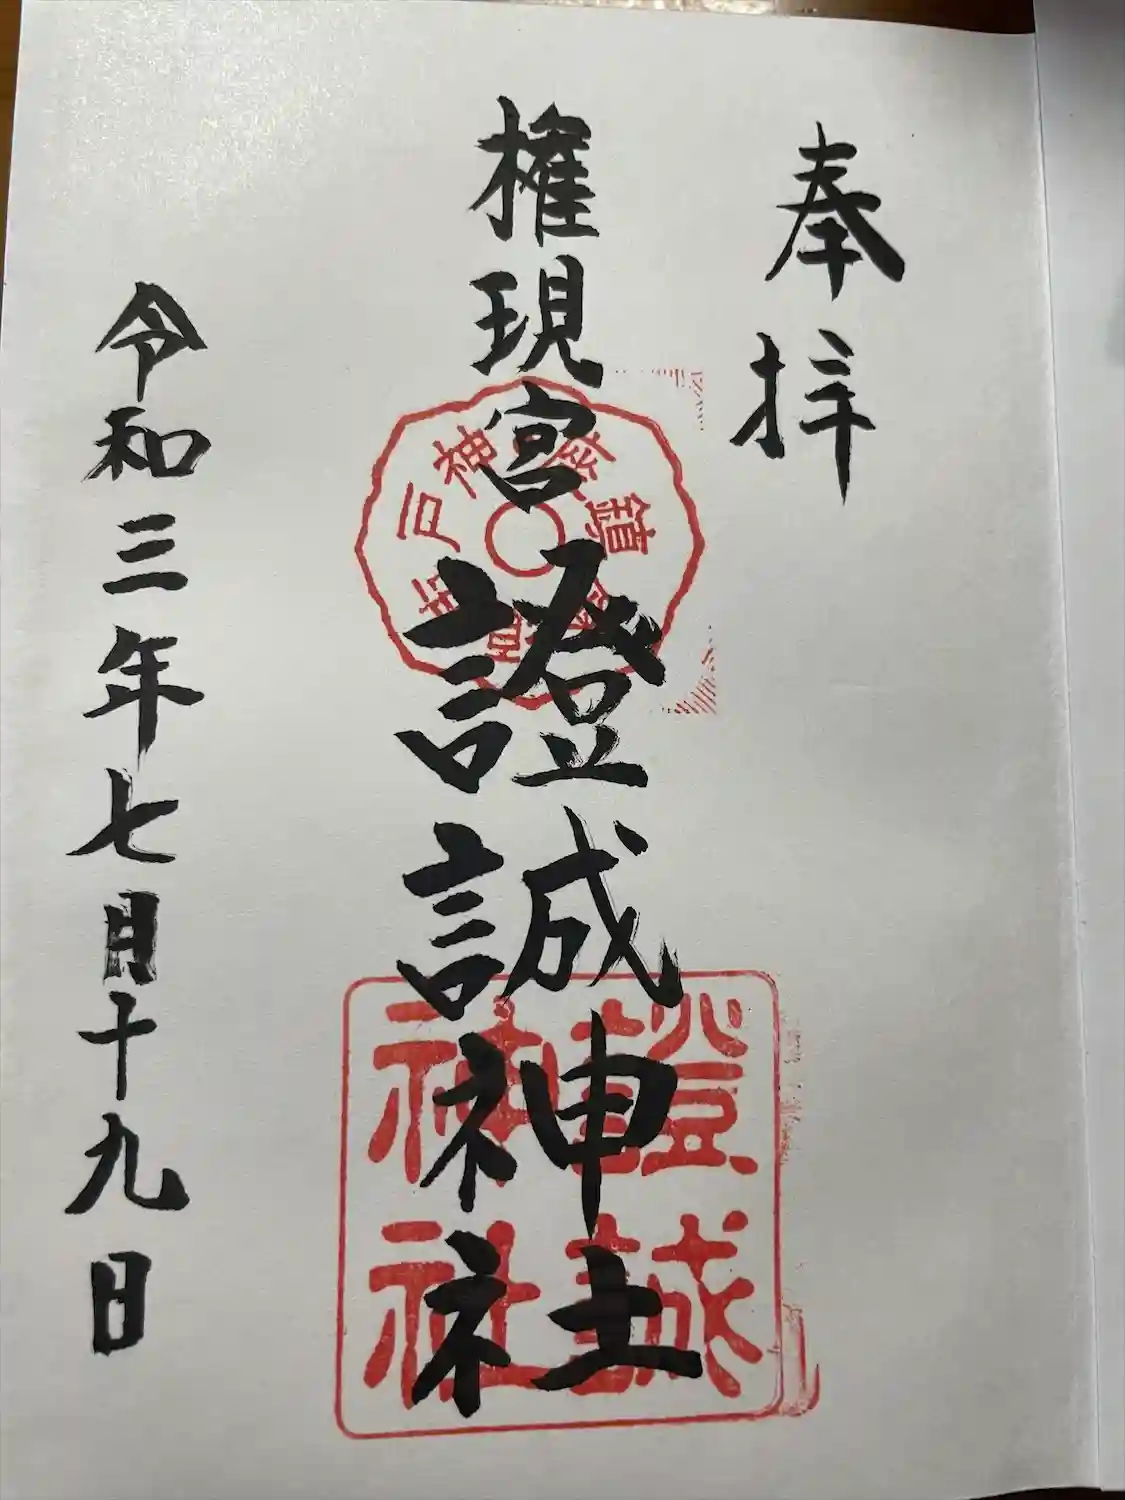 奉拝
権現宮
證誠神社
令和三年七月十九日
神戸
鎮座
證誠
神社